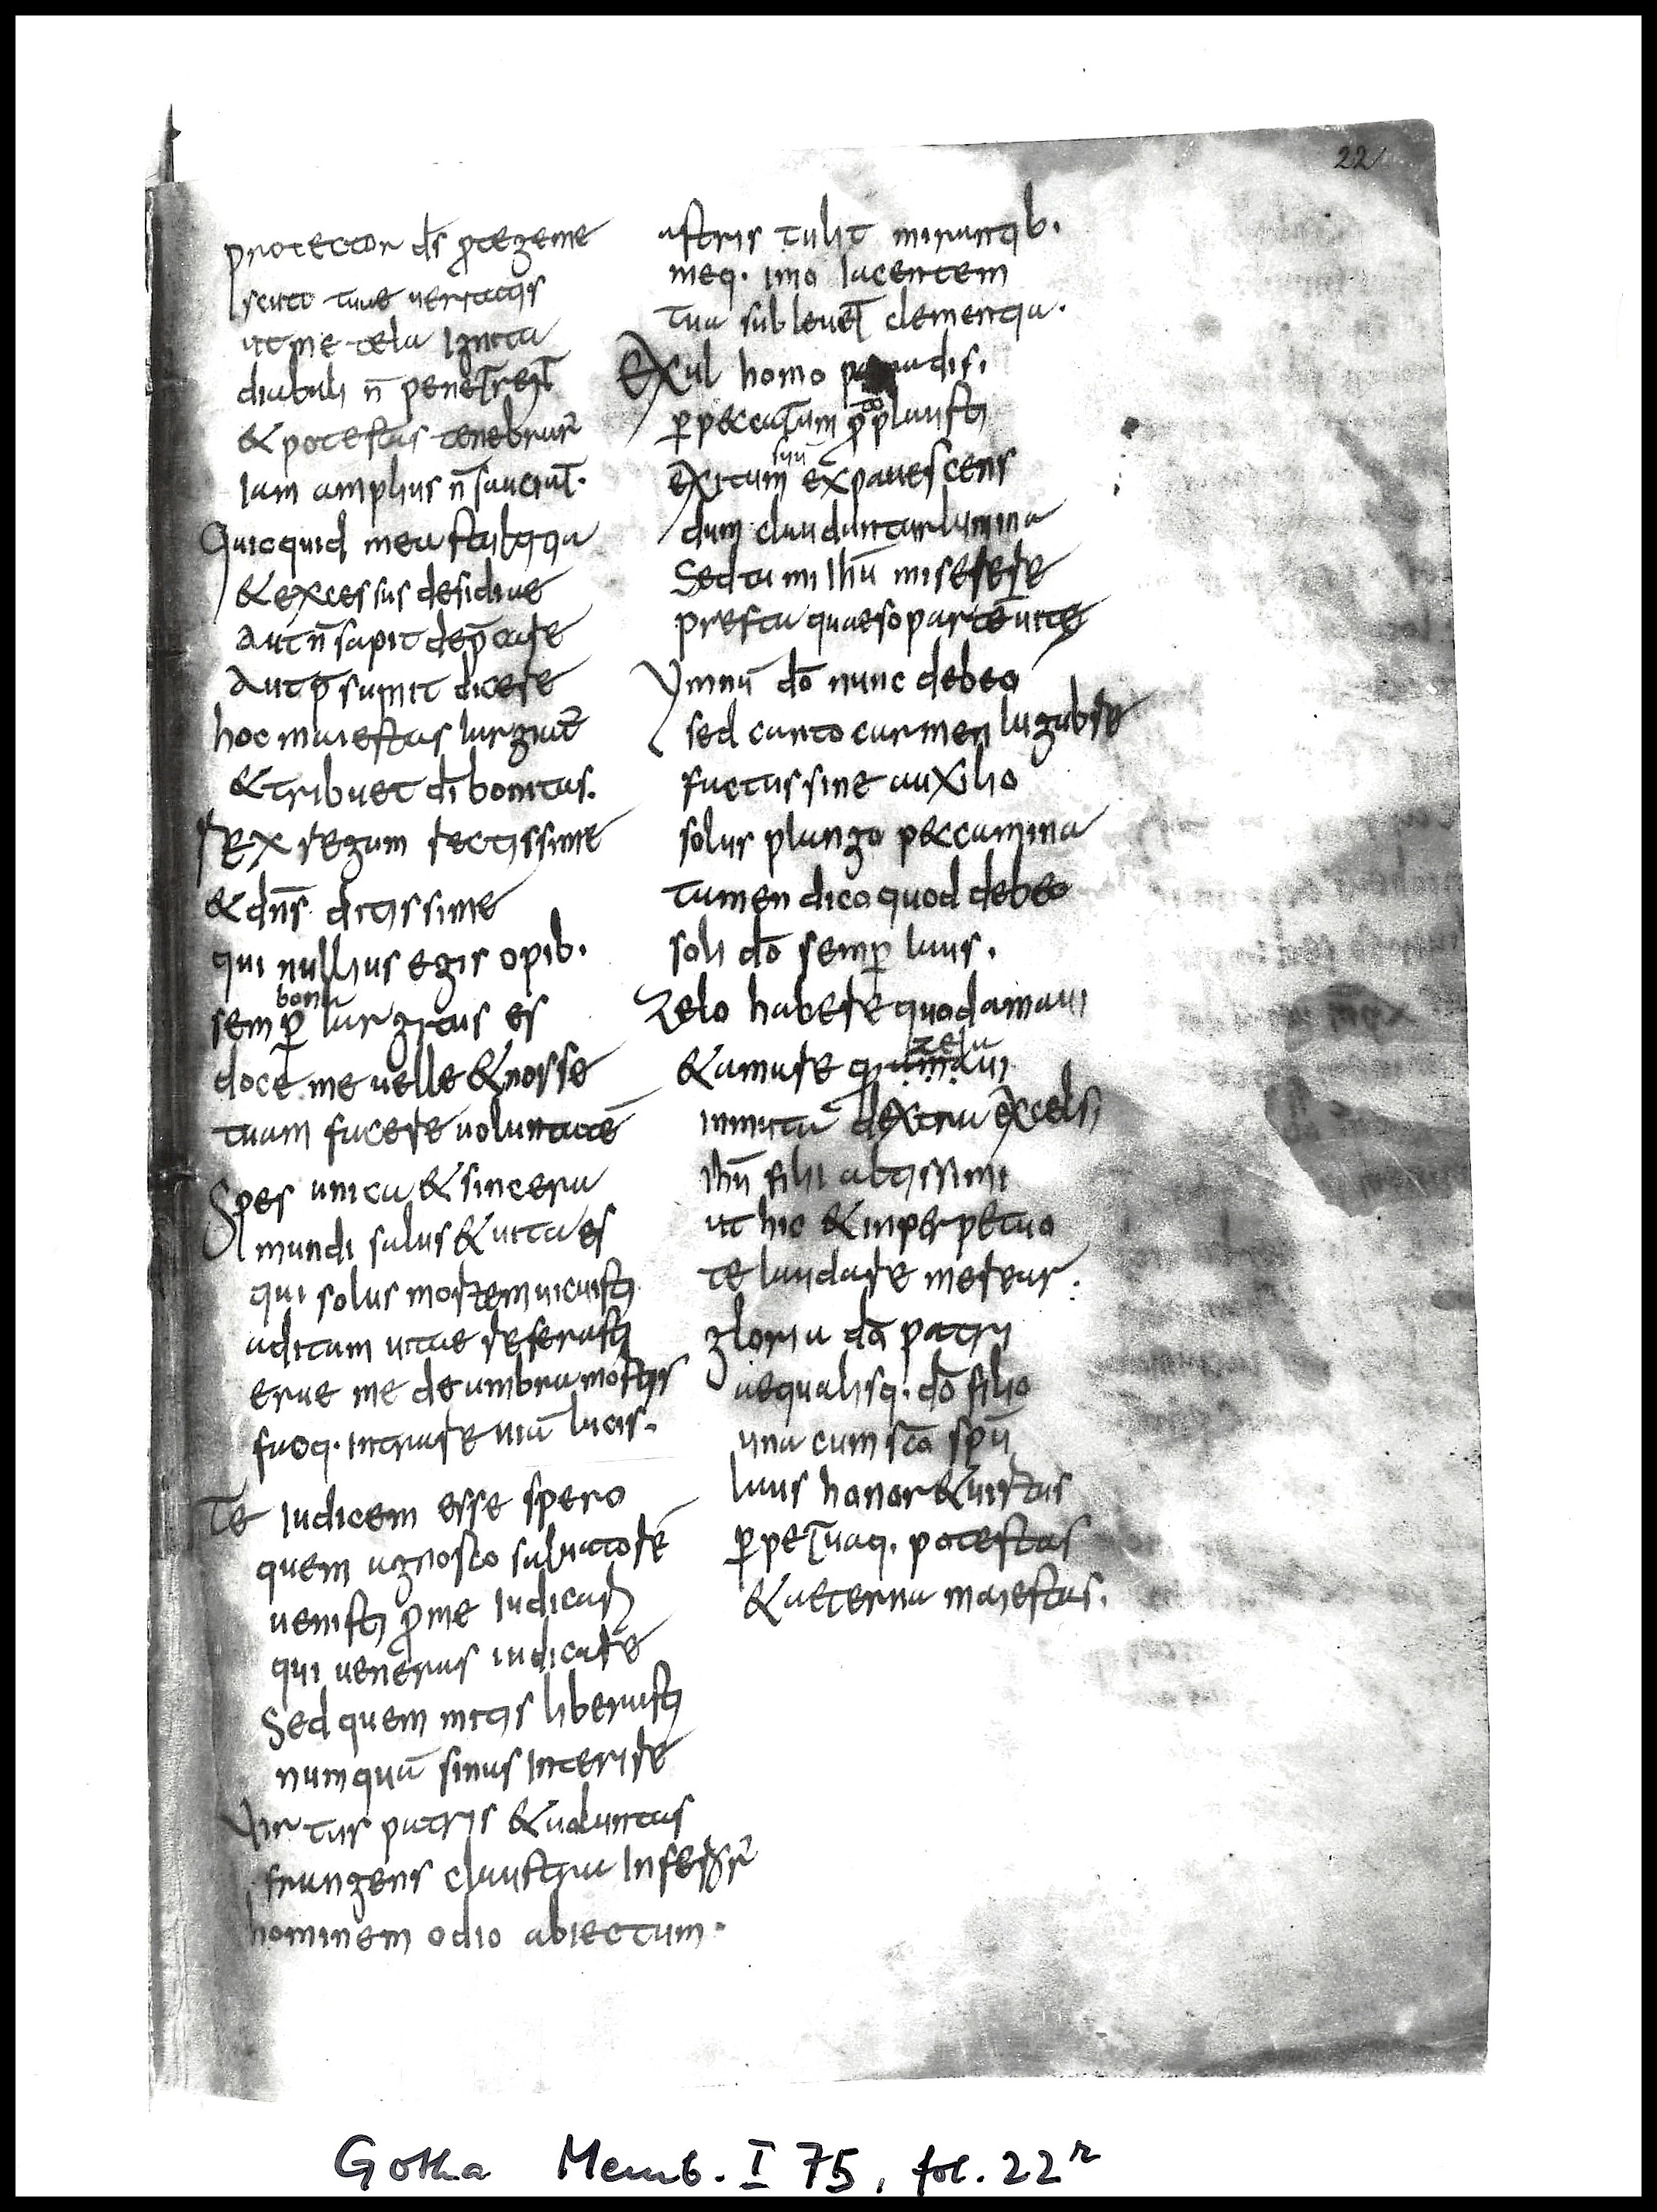 22
protector d̄s p̄tegeme
scuto tuae ueritatis
ut me tela Ignita
diabuli n̄ penetrent
& potestas tenebrar̄
Iam amplius n̄ sauciat.
Quicquid mea stultitia
& excessus desidiae
Aut n̄ sapit dep̄care
Aut p̄sumit dicere
hoc maiestas largiat̄
& tribuet dī bonitas.
Rex regum rectissime
& dn̄s ditissime
qui nullius egis opib.
bona
semp̄ largitus es
doce me uelle & nosse
tuam facere uoluntatē
Spes unica & sincera
mundi salus & uita es
qui solus mortem uicisti
aditum uitae reserasti
erue me de umbra mortis
facq. Intrare uiā lucis.
Te Iudicem esse spero
quem agnosco saluatorē
uenisti p̄ me Iudicari
qui ueneras iudicare
Sed quem mitis liberasti
numquā sinas Interire
Virtus patris & uoluntas
frangens claustra Inferor̄
hominem odio abiectum.
astris tulit mirantib.
meq. imo Iacentem
tua subleuet clementia.
Exul homo paradisi
p̄ peccatum p̄toplausti
suū
exitum expauescens
dum clauduntur lumina
Sed tu mi Ih̄u miserere
presta quaeso partē uite
Ymnū dō nunc debeo
sed canto carmen lugubre
factus sine auxilio
solus plango peccamina
tamen dico quod debeo
soli dō semp̄ laus.
Zelo habere quod amaui
zela
& amare quām.ui
inmuta dextra excelsi
Ih̄u fili altissimi
ut hic & inperpetuo
te laudare merear.
gloria dō patri
aequalisq. dō filio
una cum sc̄o sp̄u
laus honor & uirtus
p̄petuaq. potestas
& aeterna maiestas.
Gotha Memb. I 75, fol. 22r